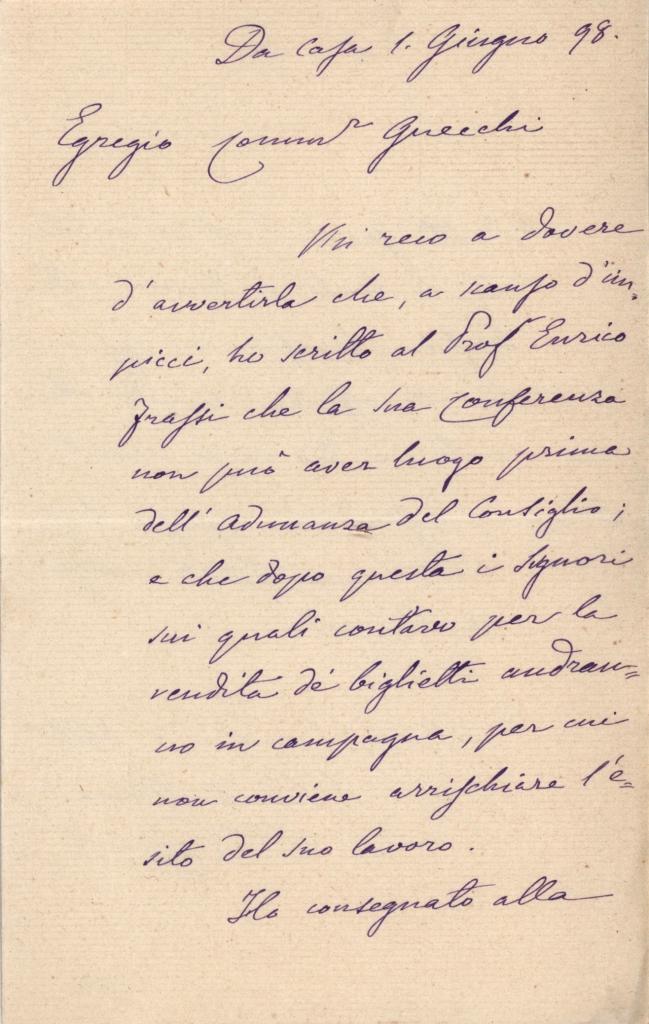 Da Casa 1. Giugno 98.
Egregio Comm.r Gnecchi
Mi reco a dovere
d'avvertirla che, a scanso d'im-
picci, ho scritto al Prof Enrico
Frassi che la sua Conferenza
non può aver luogo prima
dell'Adunanza del Consiglio;
e che dopo questa i Signori
sui quali contavo per la
vendita de' biglietti andran=
no in campagna, per cui
non conviene arrischiare l'e=
sito del suo lavoro.
Ho consegnato alla